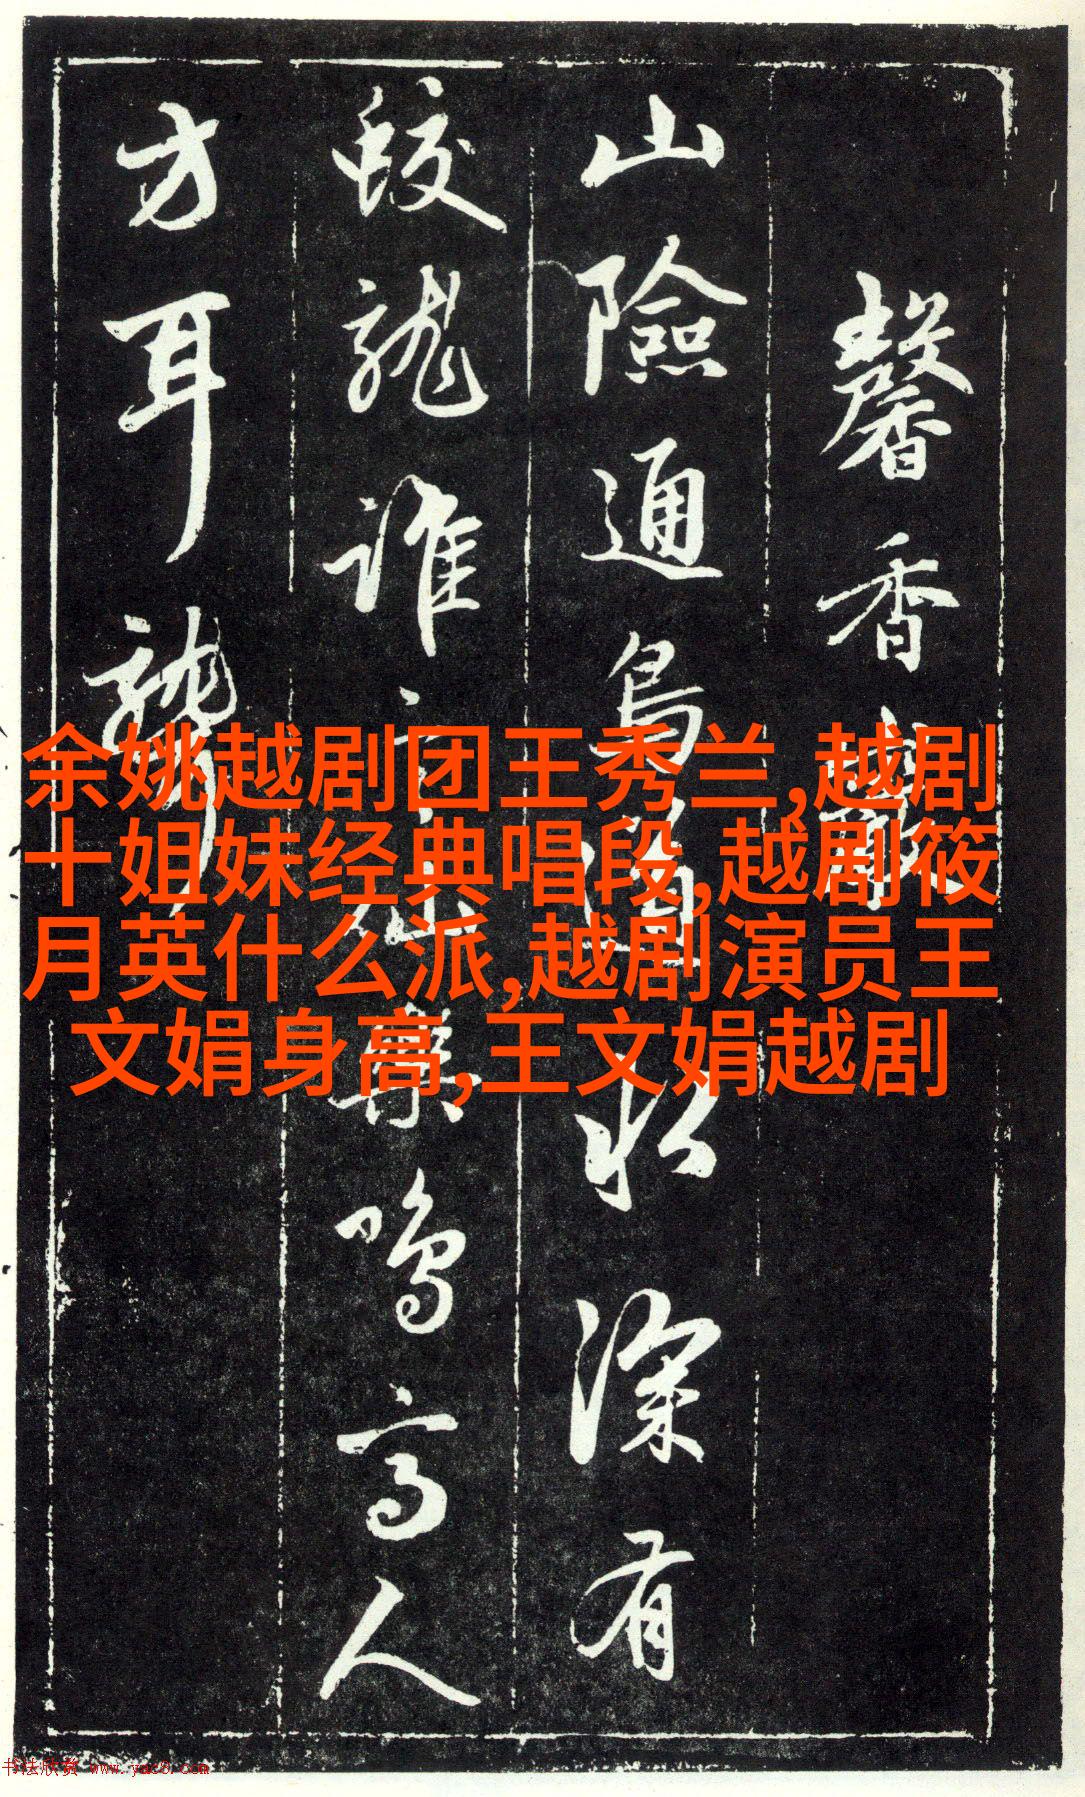 馨香
山險通鳥道 深有
蛟龍誰 樂鳴高人
方耳聾
余姚越剧团王秀兰,越剧
十姐妹经典唱段,越剧筱
月英什么派,越剧演员王
文娟身高,王文娟越剧
书法欣赏 www.yac8.com